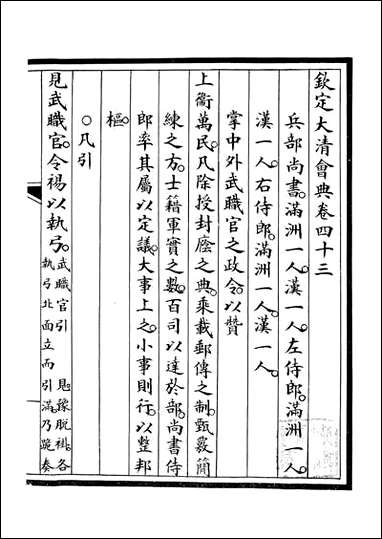 欽定大清會典卷四十三
兵部尚書。滿洲一人。漢一人。左侍郎。滿洲一人。
漢一人。右侍郎。滿洲一人。漢一人。
掌中外武職官之政令。以贊
上衞萬民。凡除授封廕之典。乘載郵傳之制。甄覈簡
練之方。士籍軍實之數。百司以達於部。尚書侍
郎率其屬以定議。大事上之。小事則行。以整邦
樞。
○凡引
見武職官。令裼以執弓。武職官引 見。豫脫褂。各
執弓北面立而引滿。乃跪奏